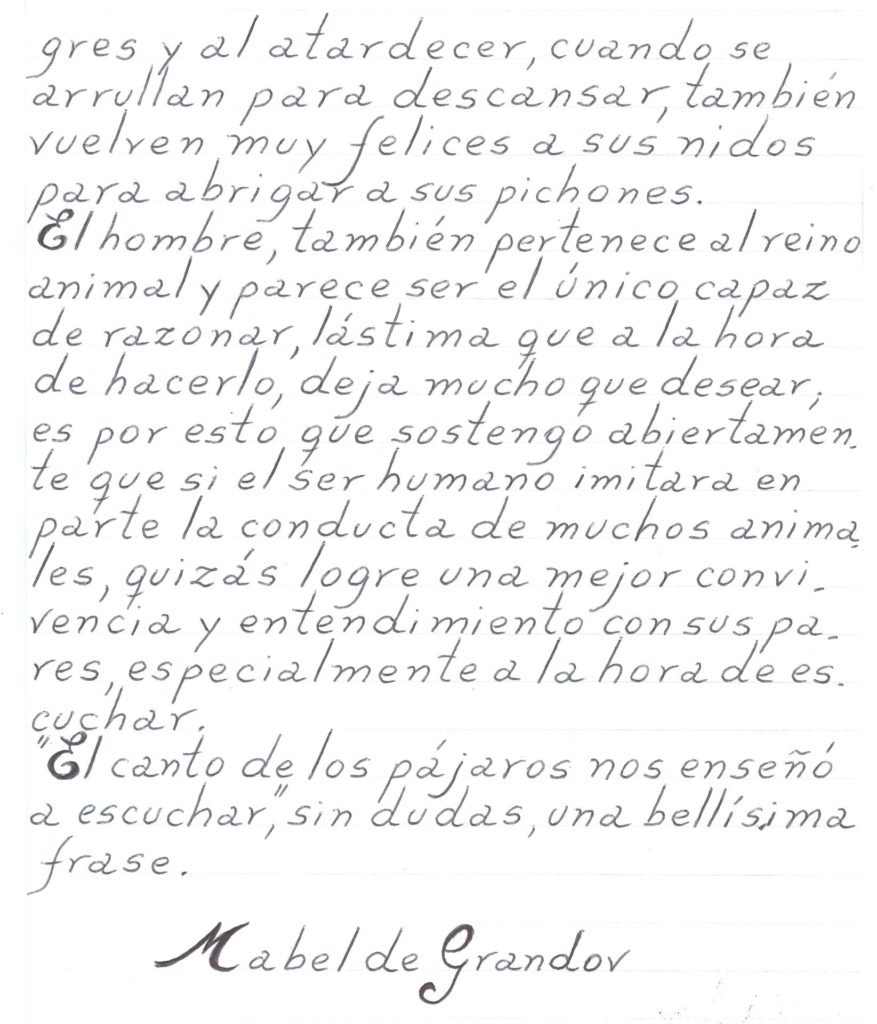 gres y al atardecer, cuando se
arrullan para descansar, también
vuelven muy felices a sus nidos
para abrigar a sus pichones.
El hombre, también pertenece al reino
animal y parece ser el único capaz
de razonar, lástima que a la hora
de hacerlo, deja mucho que desear,
es por esto que sostengo abiertamen-
te que si el ser humano imitara en
parte la conducta de muchos anima-
les, quizás logre una mejor convi-
vencia y entendimiento con sus pa-
res, especialmente a la hora de es-
cuchar.
"El canto de los pájaros nos enseñó
a escuchar", sin dudas, una bellísima
frase.
Mabel de Grandov